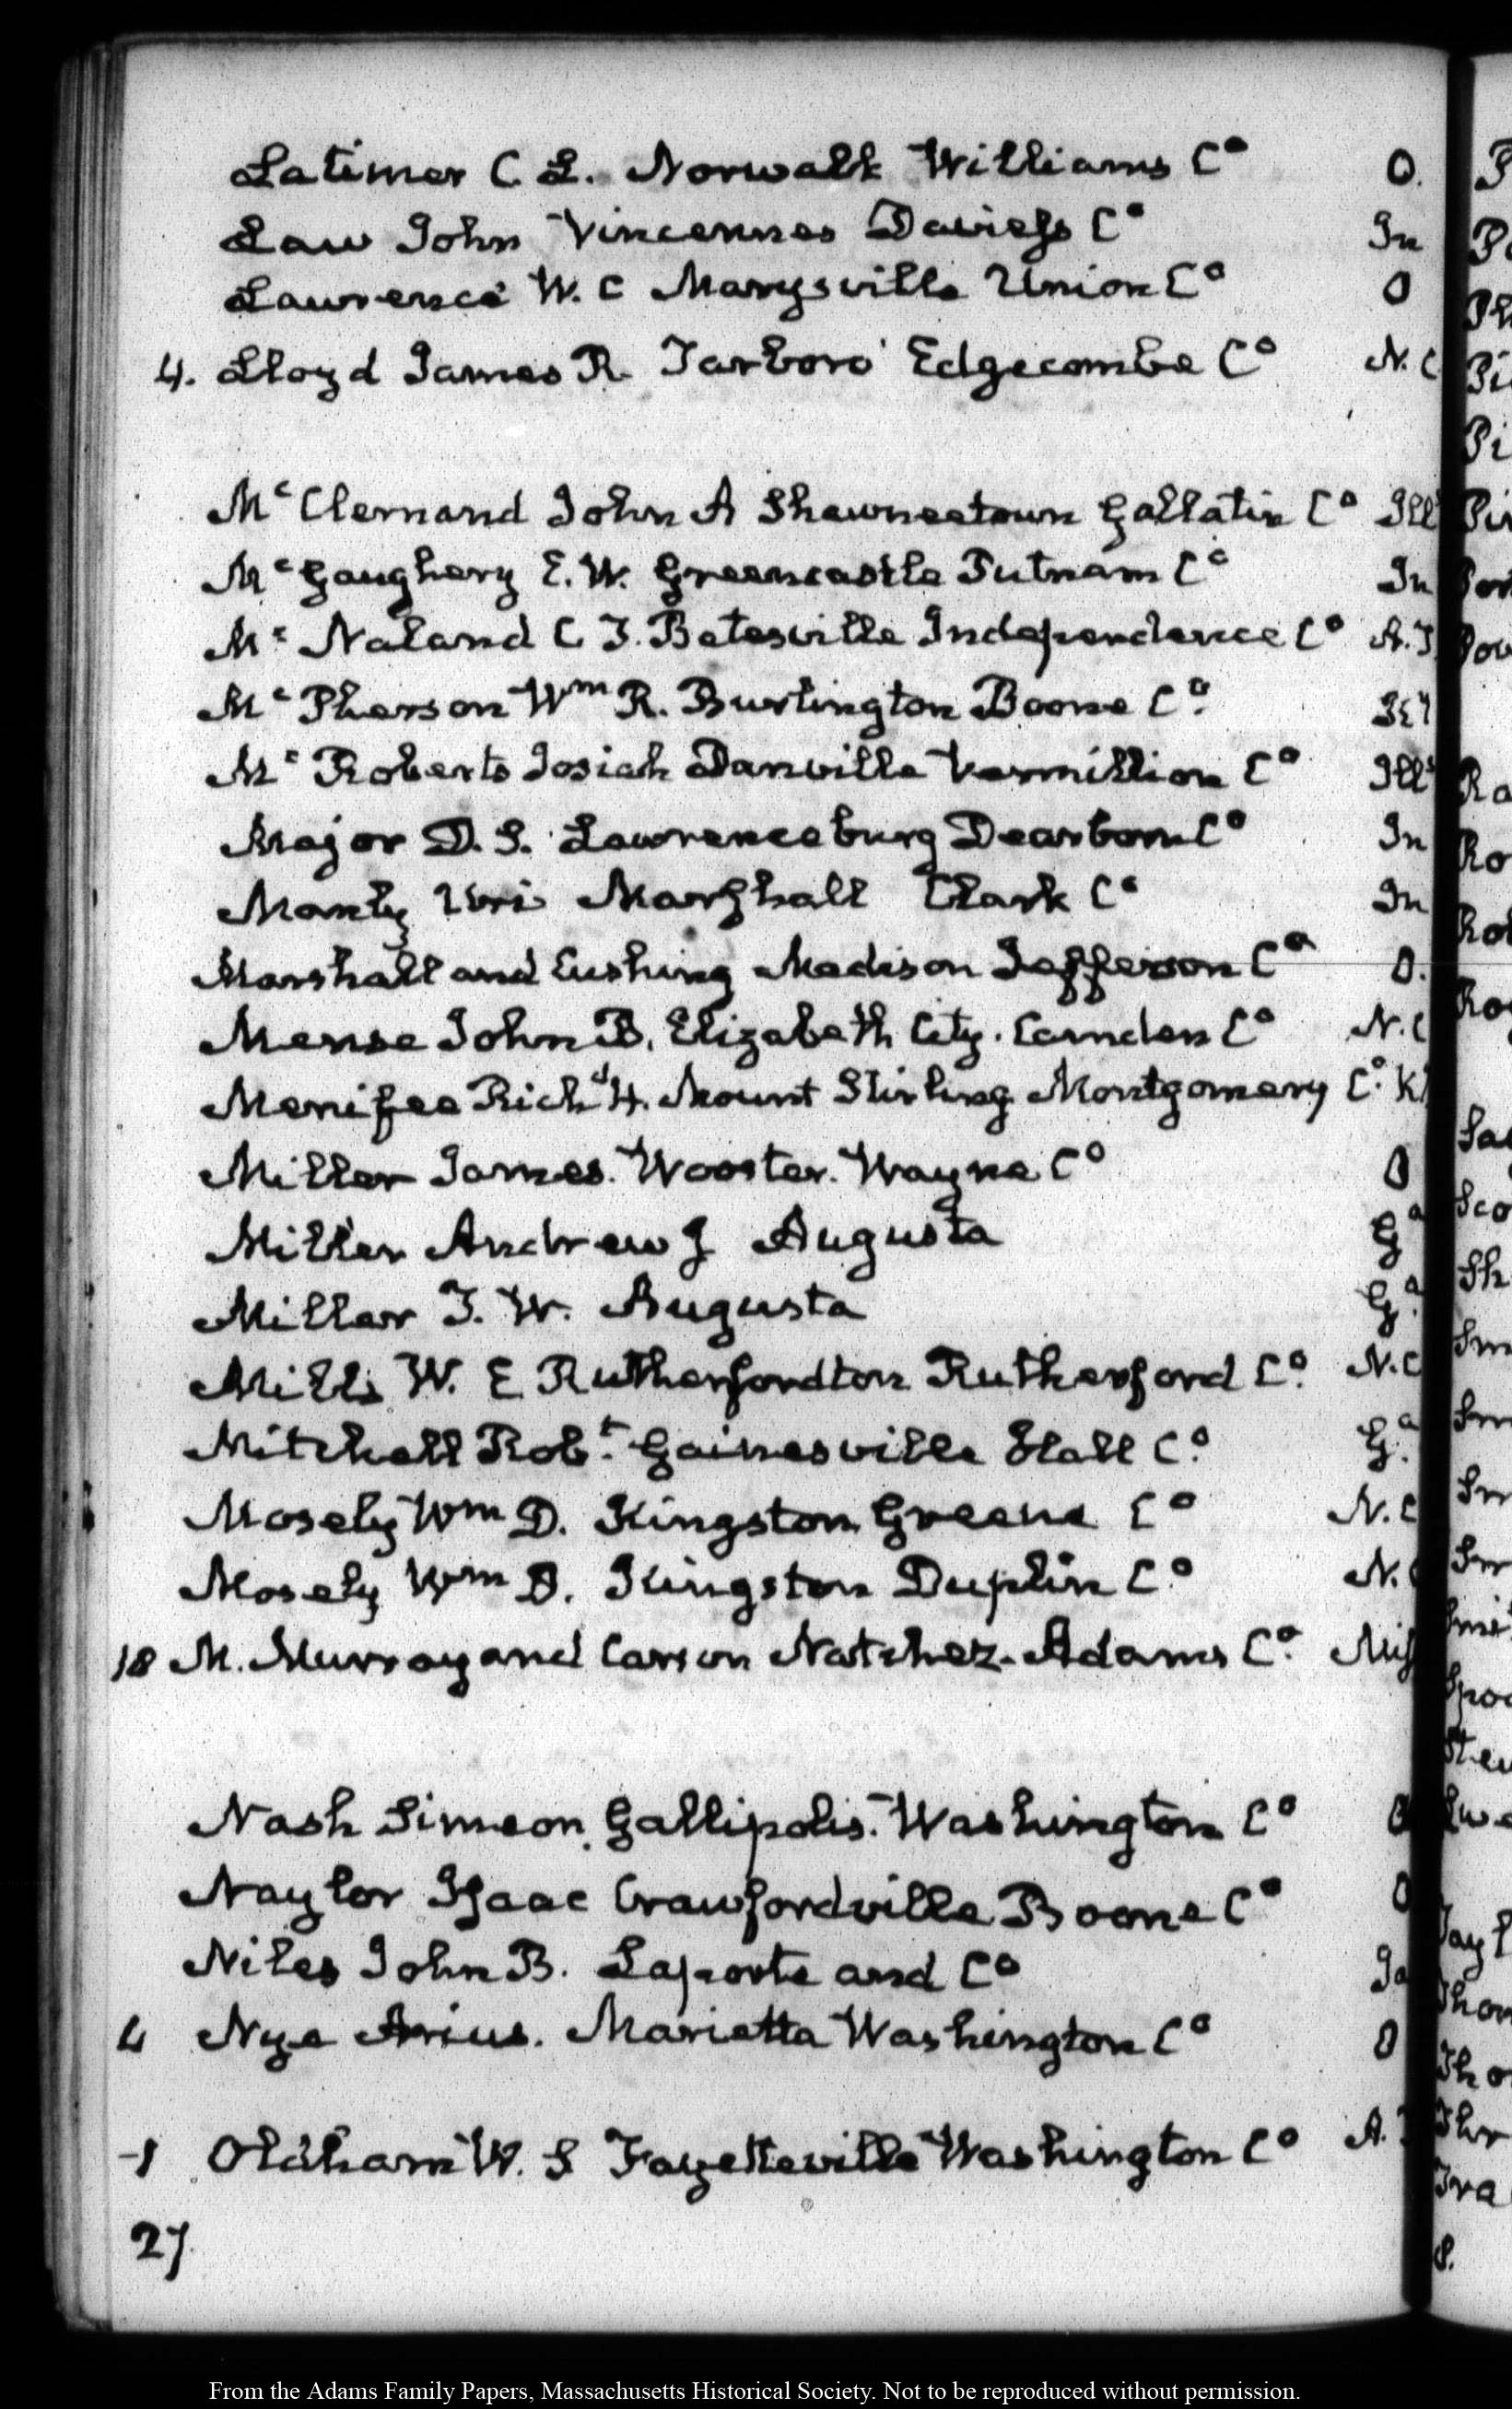 Latimer C. L. Norwalk Williams Co O.
Law John Vincennes Daviess Co In
Lawrence W. C Marysville Union Co O
4. Lloyd James R. Tarboro' Edgecombe Co N. C
Mc Clernand John A Shawneetown Gallatin Co Ills
Mc Gaughery E. W. Greencastle Putnam Co In
Mc Naland C. F. Batesville Independence Co A. T
Mc Pherson Wm R. Burlington Boone Co
Mc Roberts Josiah Danville Vermillion Co Ills
Major D. S. Lawrenceburg Dearborn Co In
Manly Uri Marshall Clark Co In
Marshall and Cushing Madison Jefferson Co O.
Mense John B. Elizabeth City. Camden Co N. C
Menifee Richd H. Mount Stirling Montgomery Co
Miller James. Wooster. Wayne Co O
Miller Andrew J Augusta Ga
Miller T. W. Augusta Ga.
Mills W. E Rutherfordton Rutherford Co. N. C
Mitchell Robt. Gainesville Hall Co. Ga.
Mosely Wm D. Kingston Greene Co N. C
Mosely Wm D. Kingston Duplin Co. N.
18 M. Murray and Carson Natchez. Adams Co.
Nash Simeon Gallipolis. Washington Co O
Naylor Isaac Crawfordville Boone Co
Niles John B. Laporte and Co
4 Nye Arius. Marietta Washington Co O
1 Oldham W. S Fayetteville Washington Co A.
27.
From the Adams Family Papers, Massachusetts Historical Society. Not to be reproduced without permission.